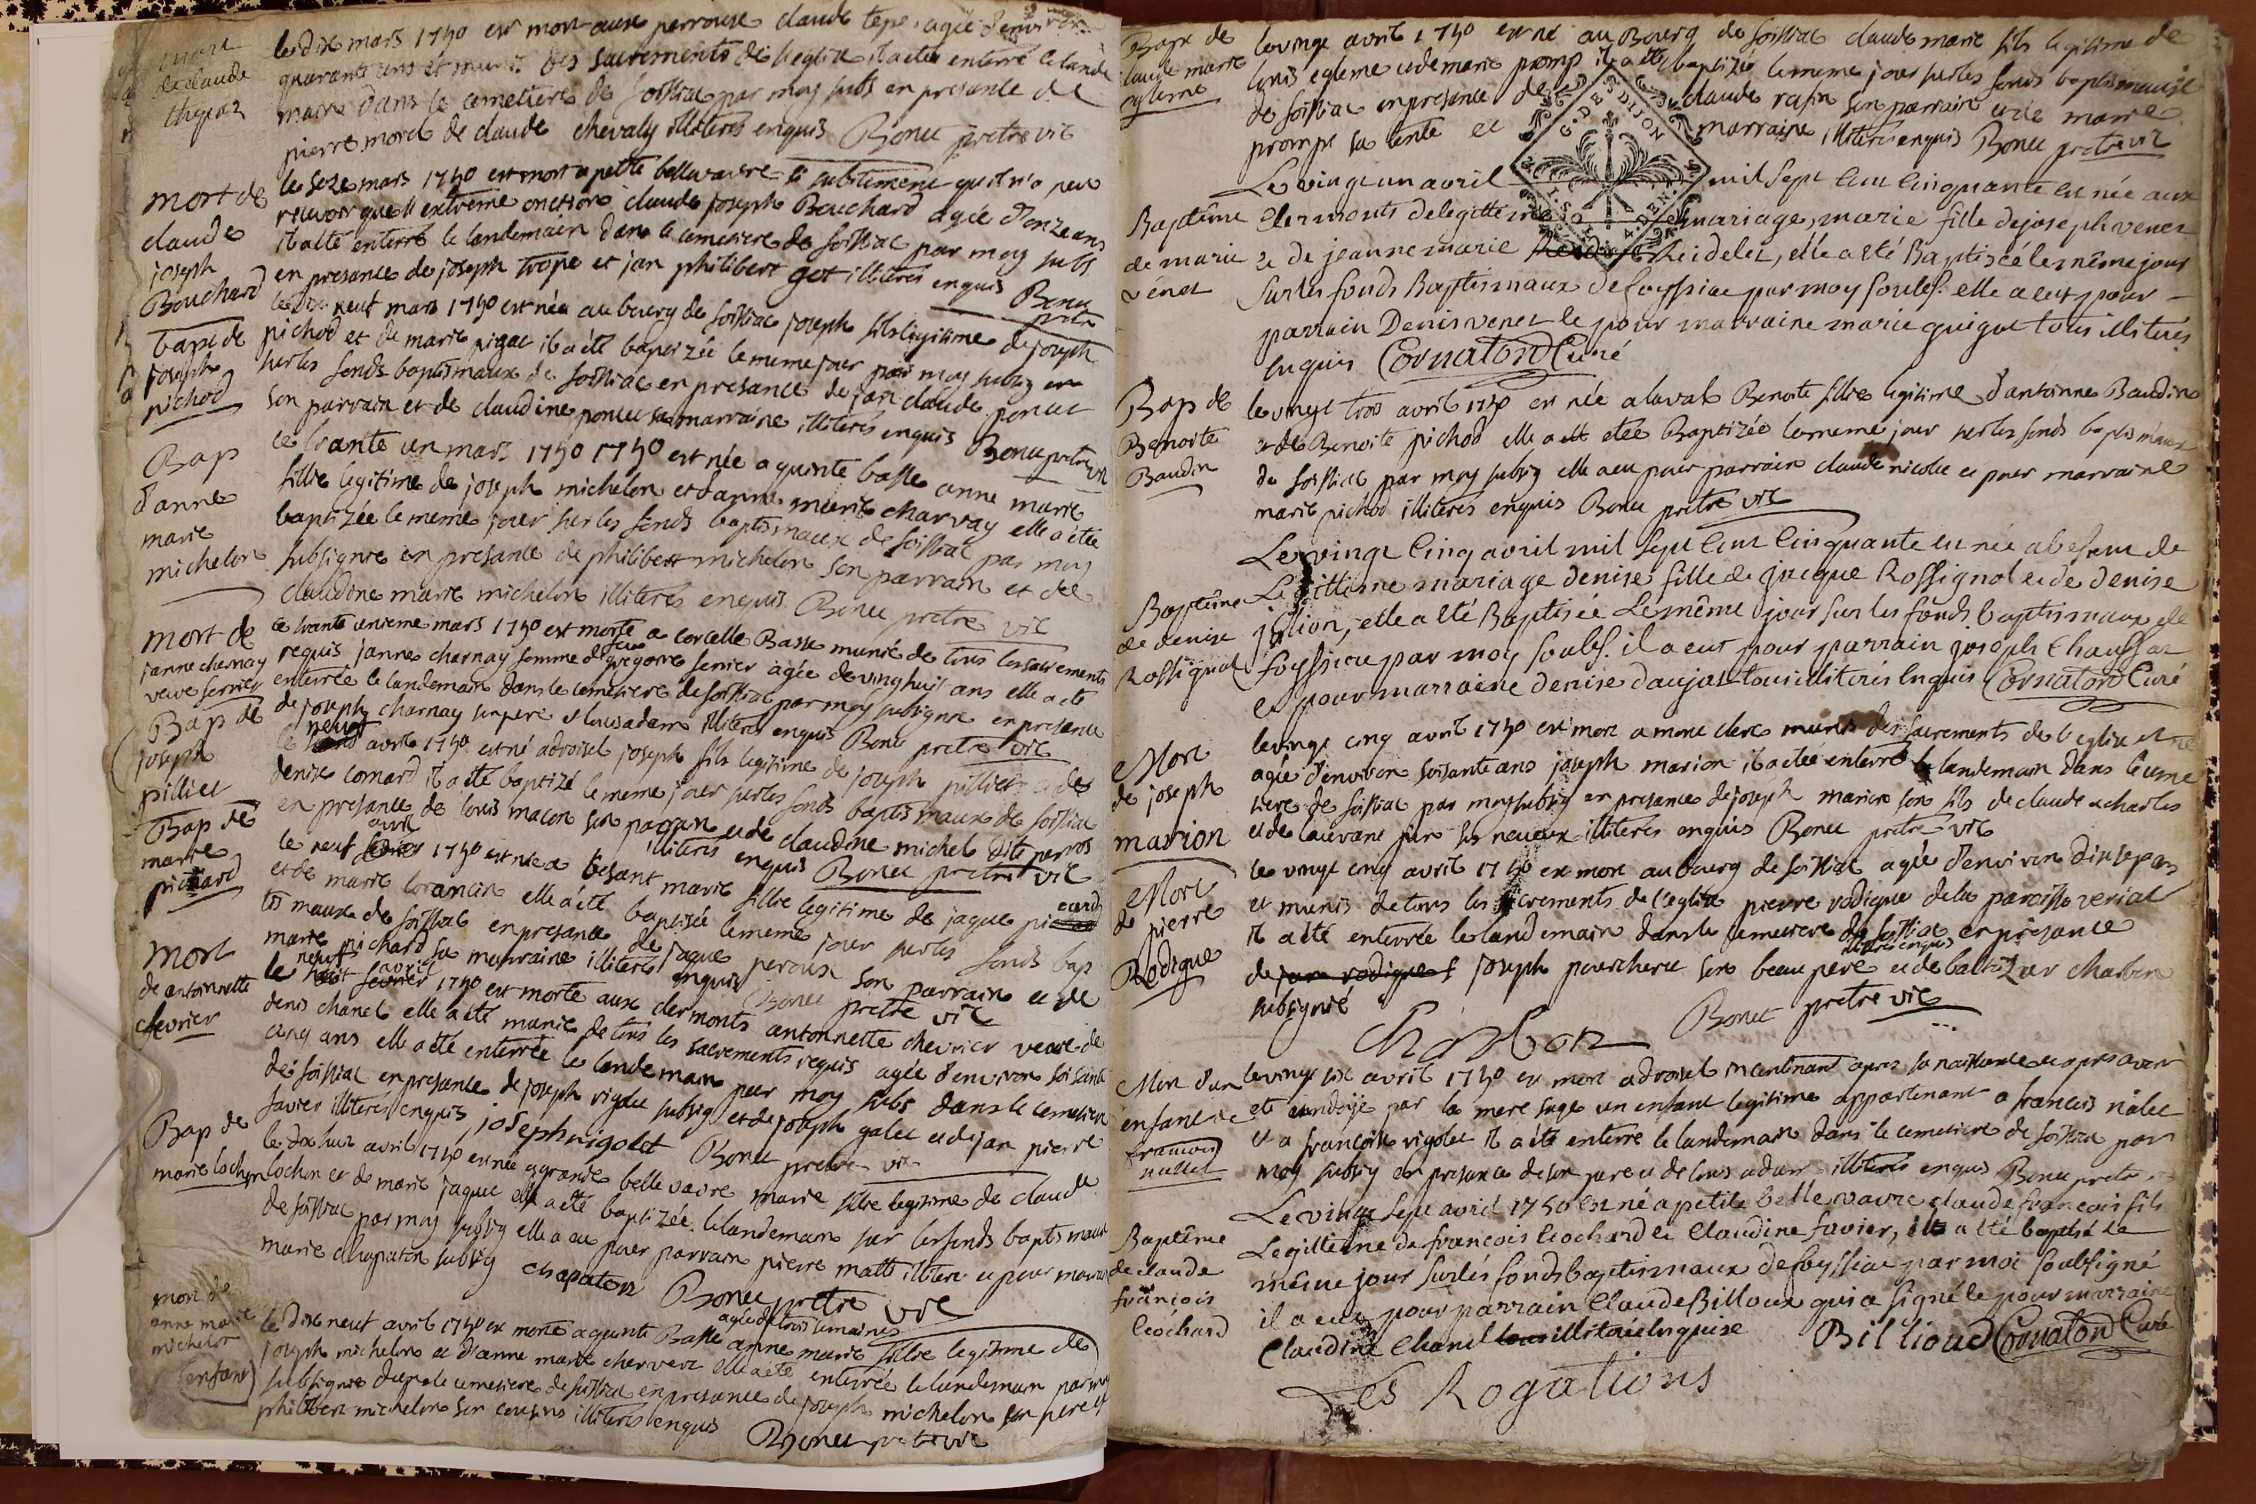 mort
de claude
thepaz
le dix mars 1750 est mort aux perrouse claude tepe agée d'environ
quarante ans et muni des sacrements de l'eglise il a ete enterré le lande
main dans le cemetiere de soissiac par moy subs en presance de
pierre morel de claude chevaly illiteres enquis Bonu pretre vic
mort de
claude
joseph
Bouchard
le seze mars 1750 est mort a petite bellevavre si subitement qu'il n'a peu
recevoir que l'extreme onction claude joseph Bouchard agée d'onze ans
il a eté enterré le landemain dans le cemetiere de soissiac par moy subs
en presance de joseph trope et jan philibert get illiteres enquis Bonu
pretre
bapt de
joseph
pichod
le dix neuf mars 1750 est née au bourg de soissiac joseph fils legitime de joseph
pichod et de marie pigat il a été baptizée le meme jour par moy subsig
sur les fonds baptismaux de soissiac en presance de jan claude poncet
son parrain et de claudine poncet sa marraine illiteres enquis Bonu pretre vic
Bap
d'anne
marie
michelon
le trante un mars 1750 1750 est née a quinte basse anne marie
fillie legitime de joseph michelon et d'anne marie charvay elle a été
baptizée le meme jour sur les fonds baptismaux de soissiac par moy
subsignie en presance de philibert michelon son parrain et de
claudine marie michelon illiteres enquis Bonu pretre vic
mort de
janne charnay
veuve servier
le trante unieme mars 1750 est morte a corcelle Basse munie de tous les sacrements
requis janne charnay femme de feu gregoire servier agée de vinghuit ans elle a ete
enterrée le landemain dans le cemetiere de soissiac par moy subsignie en presence
de joseph charnay son pere et louis adam illiteres enquis Bonu pretre vic
Bap de
joseph
pillier
le neuf avril 1750 est né a droisel joseph fils legitime de joseph pillier et de
denise cornard il a été baptizé le meme jour sur les fonds baptismaux de soissiac
en presance de louis macon son parrain et de claudine michel dite perros
illiteres enquis Bonu pretre vic
Bap de
marie
pichard
le neuf avril 1750 est née a besant marie fillie legitime de jaque picard
et de marie lorancin elle a été baptisée le meme jour sur les fonds bap
tis maux de soissiac en presance de jaque peroux son parrain et de
marie pichard sa marraine illiteres enquis Bonu pretre vic
Mort
de antoinette
chevrier
le neuf avril 1750 est morte aux clermonts antoinette chevrier veuve de
denis chanel elle a été munie de tous les sacrements requis agée d'environ soisante
cinq ans elle a été enterrée le landemain par moy subs dans le cemetiere
de soissiac en presance de joseph rigolet subsig et de joseph galet et de jan pierre
favier illiteres enquis josephrigolet Bonu pretre vic
Bap de
marie lochon
le dix huit avril 1750 est née a grande bellevavre marie fillie legitime de claude
lochon et de marie jaquet elle a été baptizée le landemain sur les fonds baptismaux
de soissiac par moy subsig elle a eu pour parrain pierre matté illitere et pour marraine
marie chapaton subsig chapaton Bonu pretre vic
mort de
anne marie
michelon
(enfant)
le dix neuf avril 1750 est morte a quinte Basse agée de trois semaines anne marie fillie legitime de
joseph michelon et d'anne marie cherverz elle a été enterrée le landemain par moy
subsignie dans le cemetiere de soissiac en presance de joseph michelon son pere et
philibert michelon son cousins illiteres enquis Bonu pretre vic
Bapt de
claude marie
egleme
le vingt avril 1750 est né au Bourg de soissiac claude marie fils legitime de
louis egleme et de marie promp il a été baptizée le meme jour sur les fonds baptismaux
de soissiac en presance de claude rafin son parrain et de marie
prompt sa tente et marraine illiteres enquis Bonu pretre vic
G. DES DIJON
Baptême
de marie
venet
Le vingt un avril mil sept cent cinquante est née aux
Clermonts de legittime mariage, marie fille de joseph venet
et de jeanne marie Reidelet, elle a eté Baptisée le même jour
sur les fonds Baptismaux de foyssiac par moy soulsf. elle a eut pour
parrain Denis venet & pour marraine marie guigue tous illiterés
Enquis Cornaton Curé
Bap de
Benoite
Baudin
le vingt trois avril 1750 est née a laval Benoite fillie legitime d'antoinne Baudin
et de Benoite pichod elle a été Baptizée le meme jour sur les fonds baptismaux
de soissiac par moy subsig elle a eu pour parrain claude nicolle et pour marraine
marie pichod illiteres enquis Bonu pretre vic
Baptême
de denise
Rossignol
Le vingt Cinq avril mil Sept Cent Cinquante est née a besant de
Legittime mariage denise fille de jacque Rossignol et de denise
jullion, elle a eté Baptisée Le même jour sur les fonds baptismaux de
foyssiac par moy soulsf. il a eut pour parrain joseph Chaussat
et pour marraine denise daujat tous illiterés Enquis Cornaton Curé
Mort
de joseph
marion
le vingt cinq avril 1750 est mort a mont clerc munis des sacrements de l'eglise et
agée d'environ soisante ans joseph marion il a été enterré le landemain dans le ceme
tiere de soissiac par moy subsig en presance de joseph marion son fils de claude et charles
illiteres enquis Bonu pretre vic
Mort
de pierre
Rodigue
le vingt cinq avril 1750 est mort au bourg de soissiac agée d'environ dix sept ans
et munis de tous les sacrements de l'eglise pierre rodigue de la paroisse veriat
il a été enterrée le landemain dans le cemetiere de soissiac en presance
de jan rodigue & joseph pourcherie son beau pere illiteres enquis et de baltazar charbon
subsignie
Charbon Bonu pretre vic
Mort d'un
enfant de
francois
nallet
le vingt six avril 1750 est mort a droisel incontinant apres sa naissance et apres avoir
eté ondoyé par la mere sage un enfant legitime appartenant a francois nalet
et a francoise rigolet il a été enterré le landemain dans le cemetiere de soissiac par
moy subsig en presance de son pere et de louis adam illiteres enquis Bonu pretre
Baptême
de claude
françois
Cochard
Le vingt Sept avril 1750 Est né a petite bellevavre claude françois fils
Legittime de françois Cochard et Claudine favier, il a eté baptisé Le
même jour sur les fonds baptismaux de foyssiac par moi soulsigné
il a eut pour parrain Claude Billoux qui a signé & pour marraine
Claudine Chanel illiterée Enquise Billioud Cornaton Curé
Les Rogations